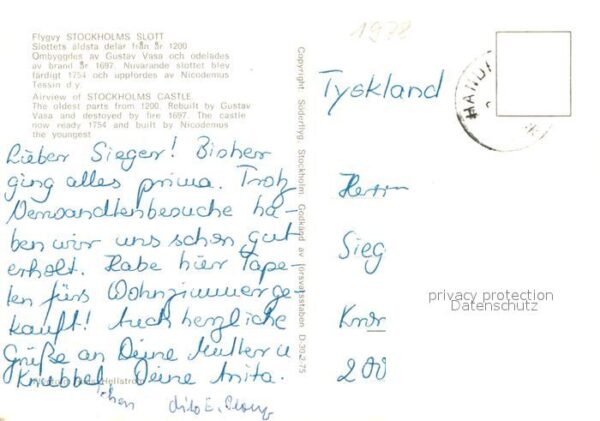 Flygvy STOCKHOLMS SLOTT
Slottets äldsta delar från år 1200
Ombyggdes av Gustav Vasa och ödelades
av brand år 1697. Nuvarande slottet blev
färdigt 1754 och uppfördes av Nicodemus
Tessin d.y.
Airview of STOCKHOLMS CASTLE
The oldest parts from 1200. Rebuilt by Gustav
Vasa and destoyed by fire 1697. The castle
now ready 1754 and built by Nicodemus
the youngest
Lieber Sieger! Bisher
ging alles prima. Trotz
Verwandtenbesuche ha-
ben wir uns schon gut
erholt. Habe hier Tape-
ten fürs Wohnzimmer ge-
kauft! Auch herzliche
Grüße an Deine Mutter u
Deine Anita.
Copyright: Söderflyg, Stockholm Godkänd av försvarsstaben D-30-2-75
1978
Tyskland
HANDA
Herrn
Sieg
200
privacy protection
Datenschutz